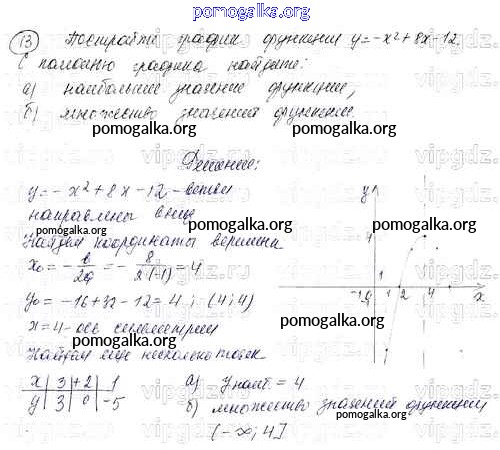 pomogalka.org
13 Постройте график функции y = -x² + 8x - 12.
С помощью графика найдите:
а) наибольшее значение функции;
б) множество значений функции.
pomogalka.org
pomogalka.org
Решение:
y = -x² + 8x - 12 - ветви
направлены вниз
pomogalka.org
pomogalka.org
Найдём координаты вершины
x₀ = -b/2a = -8/2·(-1) = 4
y₀ = -16 + 32 - 12 = 4; (4; 4)
x = 4 - ось симметрии
Найдём ещё несколько точек.
x | 3 | 2 | 1
y | 3 | 0 | -5
y
4
1
-1 0 1 2 4 x
pomogalka.org
pomogalka.org
а) y наиб. = 4
б) множество значений функции
(-∞; 4]
pomogalka.org
pomogalka.org